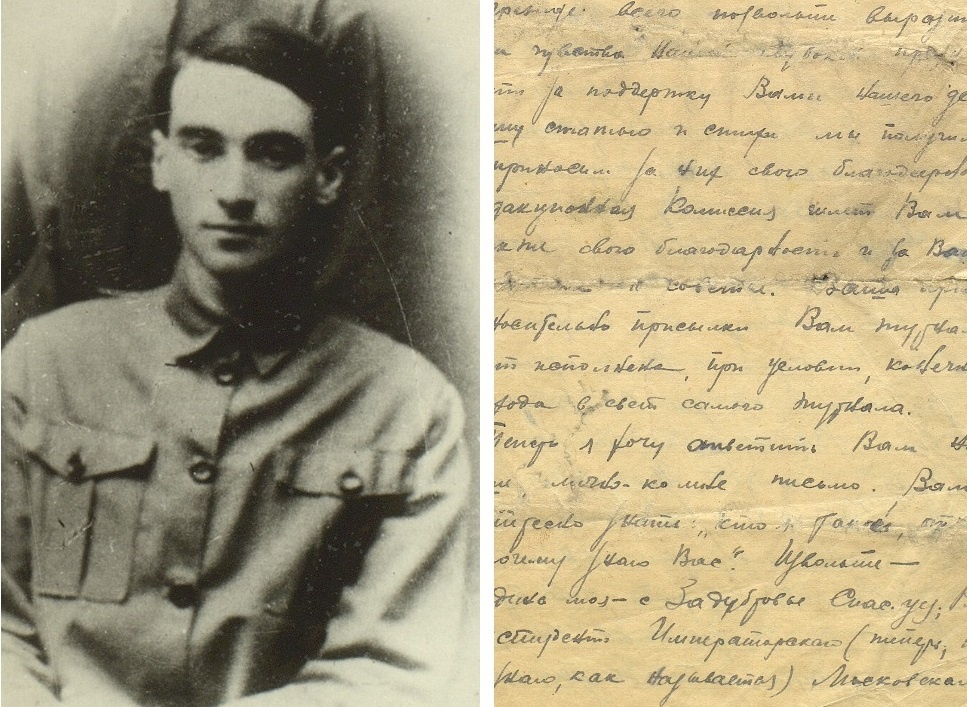 прежде всего позвольте выразит
и чувства нашей глубокой
ть за поддержку Вами нашего де
шу статью и стихи мы получи
приносим за них свою благодарно
дакционная Комиссия шлет Вам
кже свою благодарность и за Ва
и советы. Ваша пр
носительно присылки Вам журна
т исполнена, при условии, конечн
хода в свет самого журнала.
Теперь я хочу ответить Вам н
лично-ко мне письмо. Вам
тересно знать: „кто я такой, от
очему знаю Вас". Извольте —
дина моя — с. Задубровье Спас. уу,
студент Императорскаго (теперь,
знаю, как называется) Московска